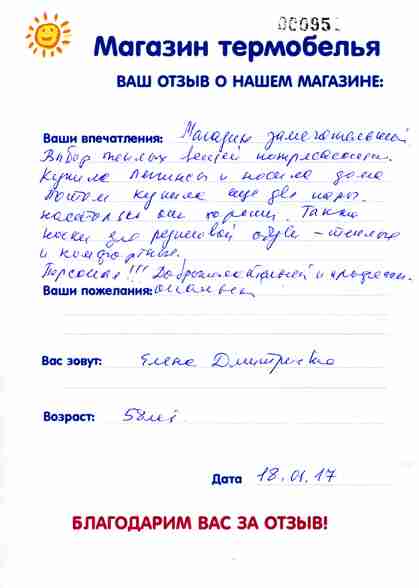 00095
Магазин термобелья
ВАШ ОТЗЫВ О НАШЕМ МАГАЗИНЕ:
Ваши впечатления: Магазин замечательный.
Выбор теплых вещей потрясающий.
Купила и носила дома
Потом купила еще две пары.
настолько они хороши. Также
носки для резиновой обуви - теплые
и комфортные.
Персонал!!! Доброжелательный и професси-
Ваши пожелания: ональный
Вас зовут: Елена
Возраст: 58 лет.
Дата 18.01.17
БЛАГОДАРИМ ВАС ЗА ОТЗЫВ!